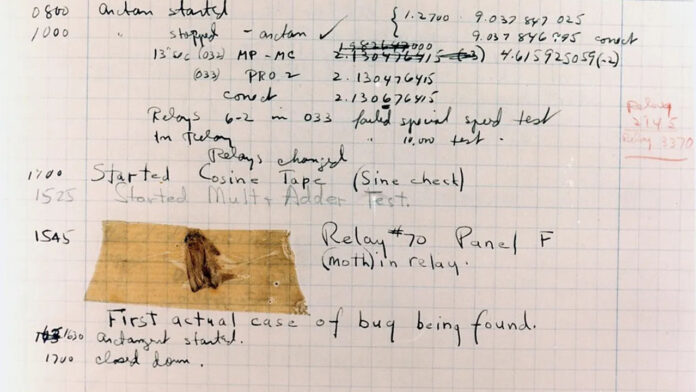 0800 antan started
1000 " stopped - antan ✓
{ 1.2700 9.037 847 025
9.037 846 995 conect
13"uc (032) MP - MC 2.130476415 4.615925059(-2)
(033) PRO 2 2.130476415
conect 2.130676415
Relays 6-2 in 033 failed special speed test
in Relay " 10.000 test.
Relay
2145
Relay 3370
Relays changed
1700 Started Cosine Tape (Sine check)
1525 Started Mult + Adder Test.
1545 Relay #70 Panel F
(moth) in relay.
First actual case of bug being found.
1630 antangent started.
1700 closed down.